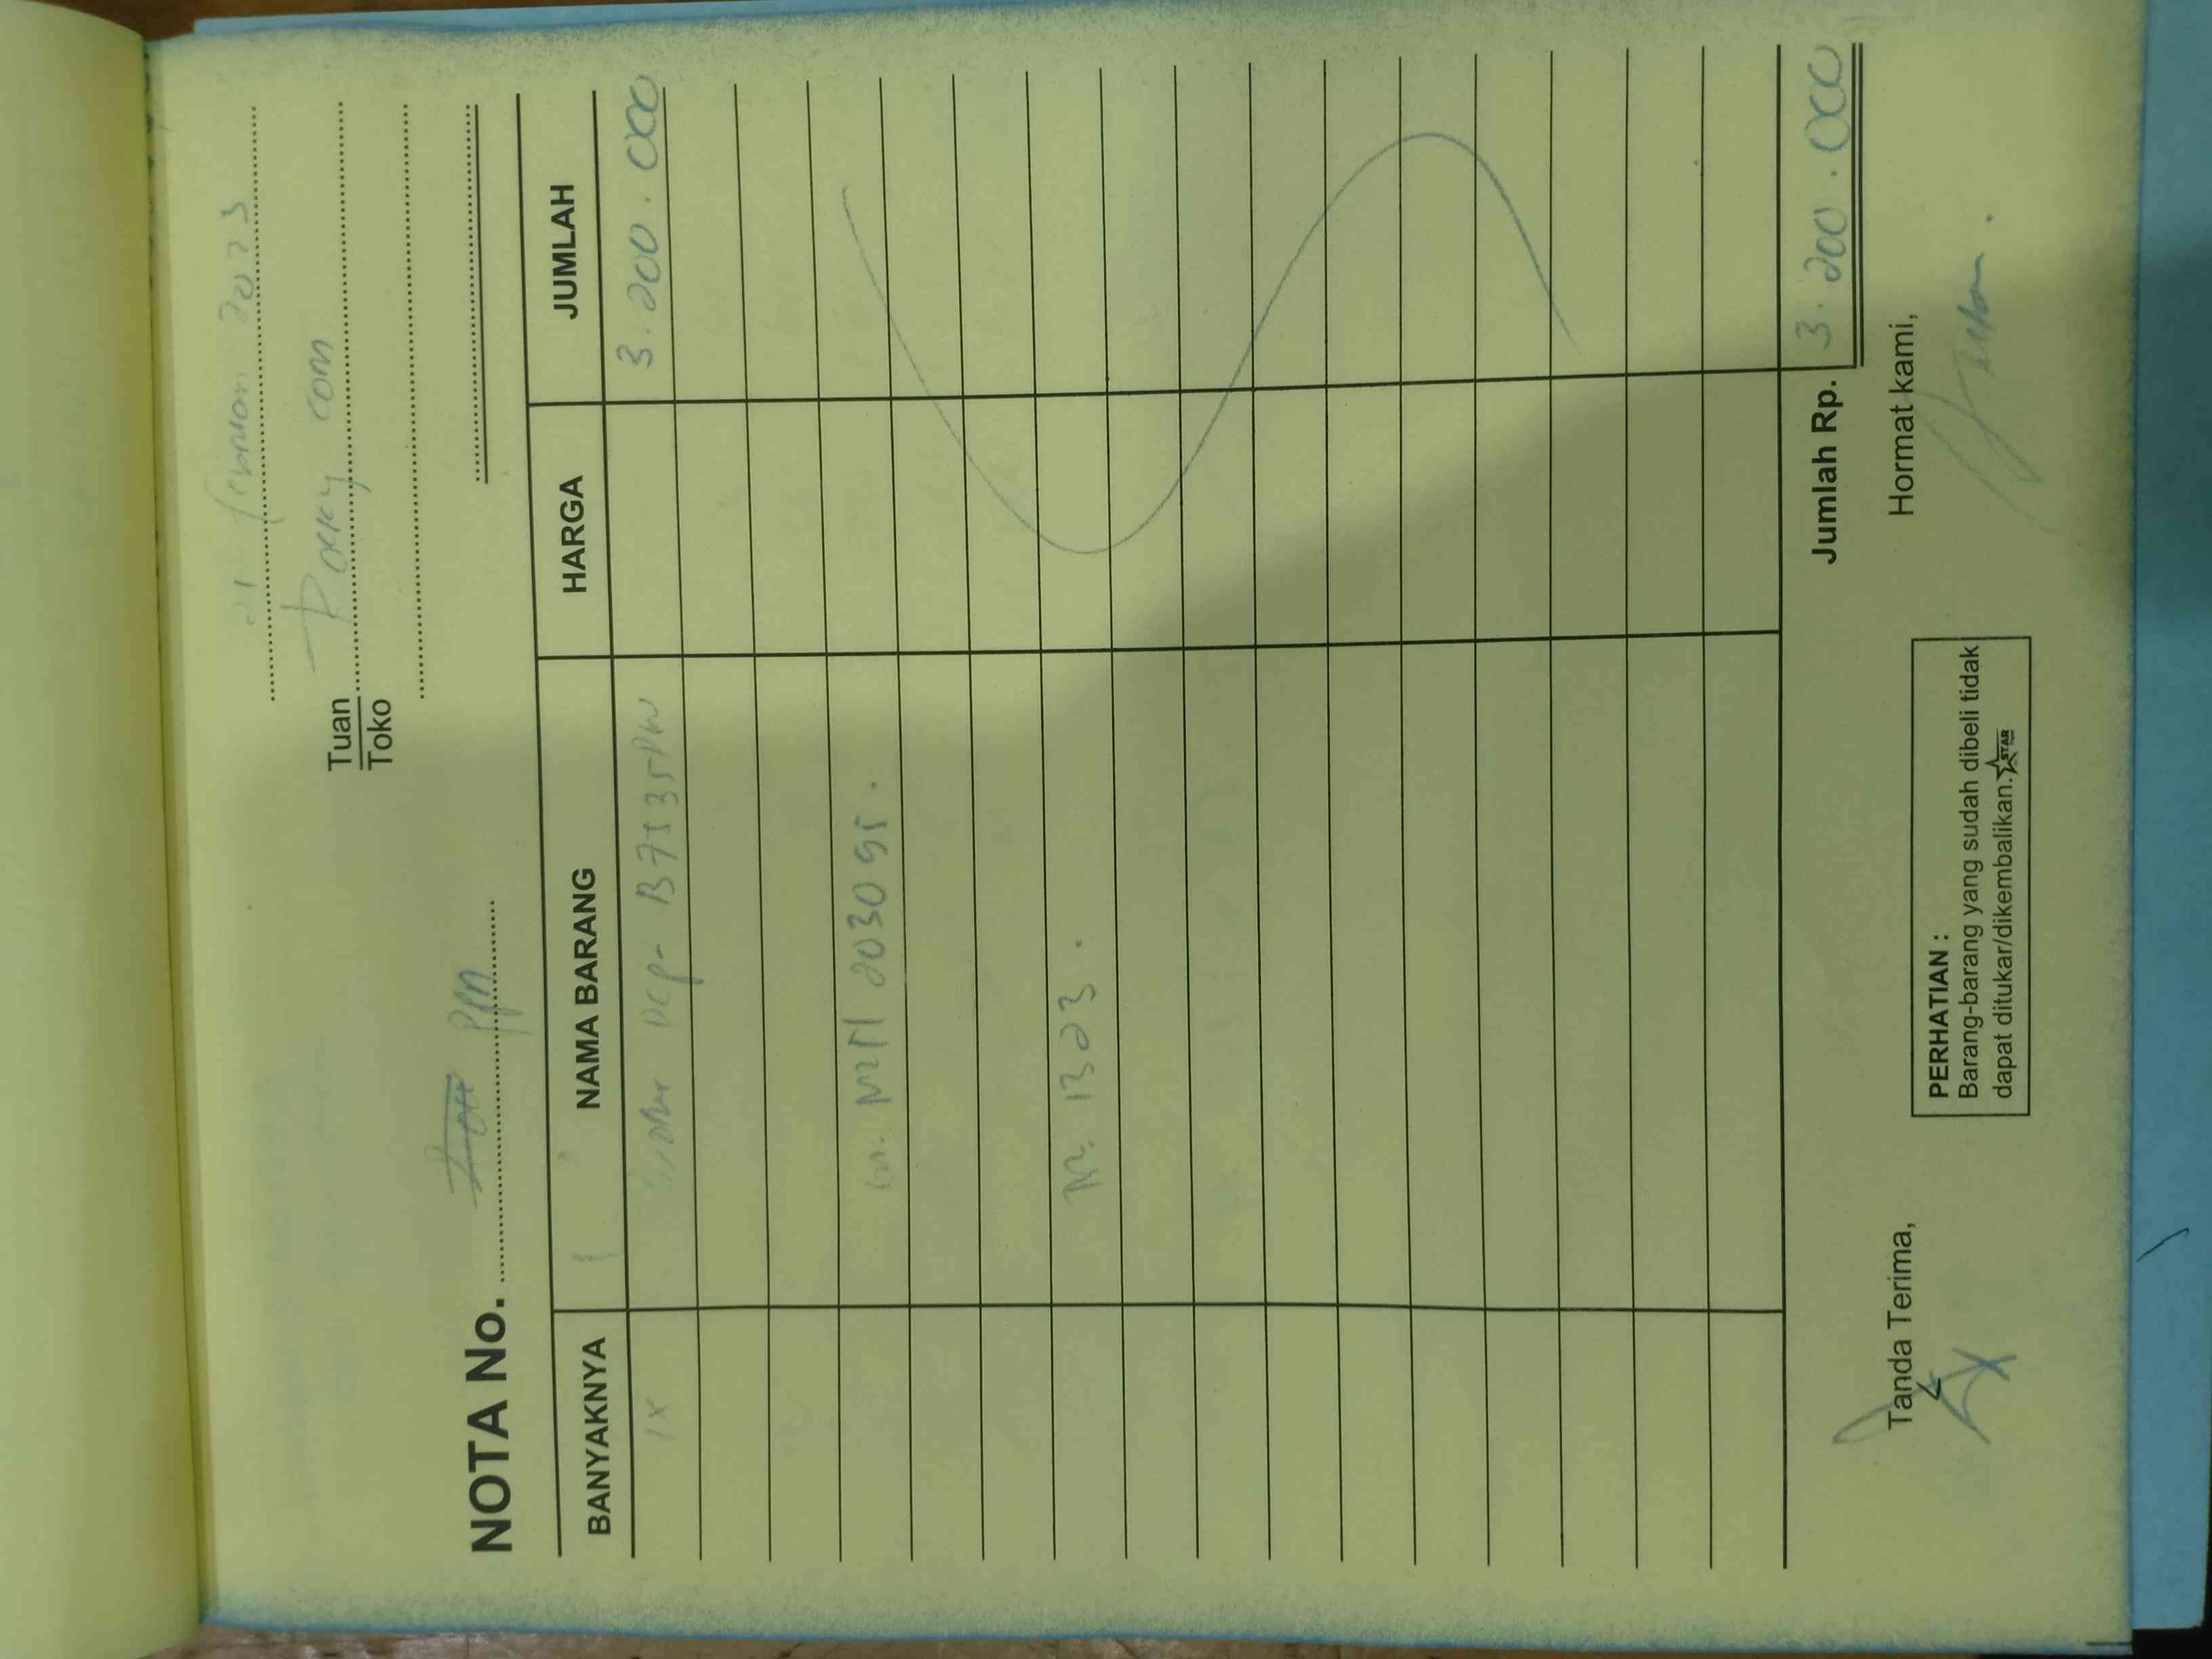 2023
Rocky com
Tuan
Toko
NOTA No. PPN
BANYAKNYA NAMA BARANG HARGA JUMLAH
1x DCP- B7535DW 3.200.000
2030 95.
1323.
Jumlah Rp. 3.200.000
Tanda Terima, Hormat kami,
PERHATIAN :
Barang-barang yang sudah dibeli tidak
dapat ditukar/dikembalikan.
STAR